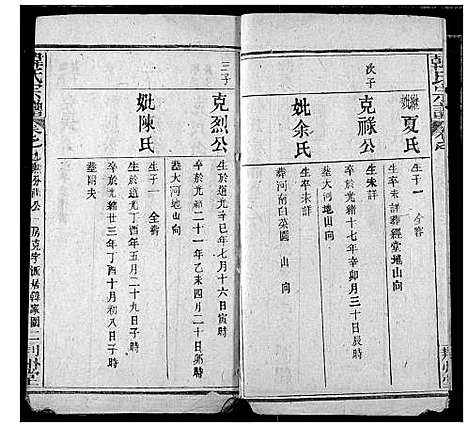 韓氏宗譜
繼妣夏氏
生子一 今容
生卒未詳葬經堂地山向
次子
克祿公
生未詳
卒於光緒十七年辛卯月三十日辰時
塟大河地山向
妣余氏
生卒未詳
葬河南白菜園 山 向
三子
克烈公
生於道光辛巳年七月十六日寅時
卒於光緒二十一年乙未四月二十日卯時
塟大河地山向
妣陳氏
生子一 全喬
生於道光丁酉年五月二十九日子時
卒於光緒廿三年丁酉十月初八日子時
塟同夫
韓氏宗譜